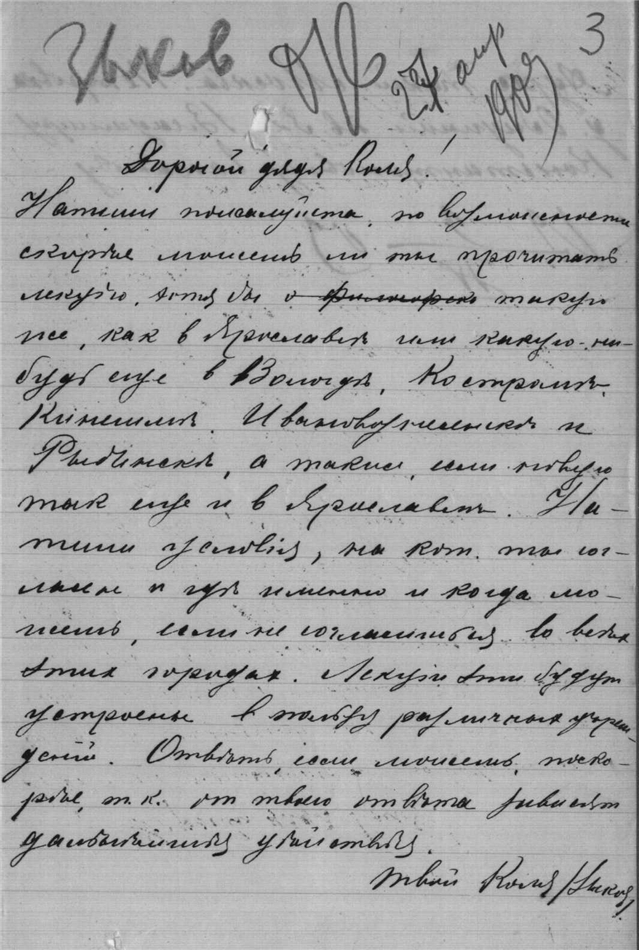 Зыков
27 апр
1909
3
Дорогой дядя Коля!
Напиши пожалуйста, по возможности
скорѣе можешь ли ты прочитать
лекцію, хотя бы о философско такую
же, какъ в Ярославлѣ или какую-ни-
будь еще в Вологдѣ, Костромѣ,
Кинешмѣ, Ивановознесенскѣ и
Рыбинскѣ, а также, если новую
так еще и в Ярославлѣ. На-
пиши условія, на кот. ты сог-
ласен и гдѣ именно и когда мо-
жешь, если не согласишься во всѣх
этих городах. Лекціи эти будут
устроены в пользу различных учреж-
деній. Отвѣть, если можешь, поско-
рѣе, т.к. от твоего отвѣта зависят
дальнѣйшія
твой Коля /Зыков/.